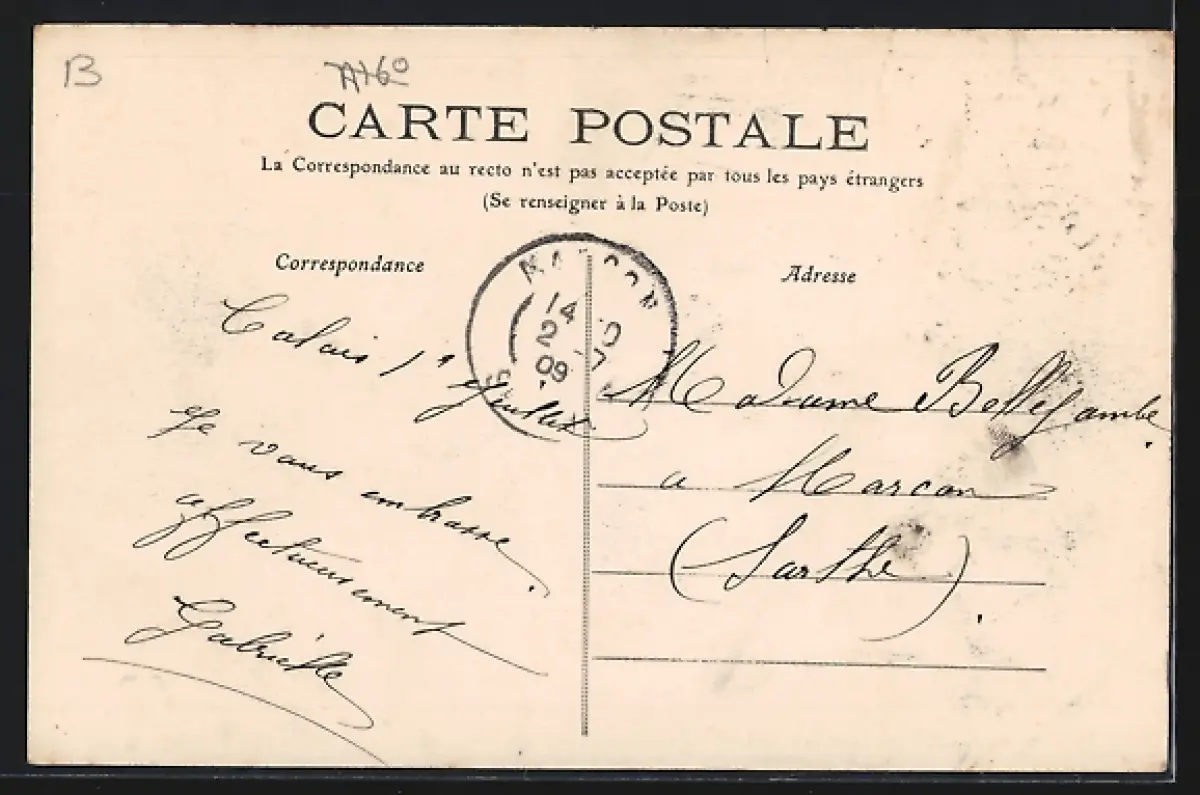 B
CARTE POSTALE
La Correspondance au recto n'est pas acceptée par tous les pays étrangers
(Se renseigner à la Poste)
Correspondance
Adresse
MARCON
14
2 -7
09
Calais 1er Juillet
Je vous embrasse
affectueusement
Gabrielle
Madame Bellejambe
a Marcon
(Sarthe).